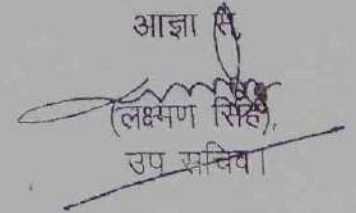 आज्ञा से
(लक्ष्मण सिंह),
उप सचिव।